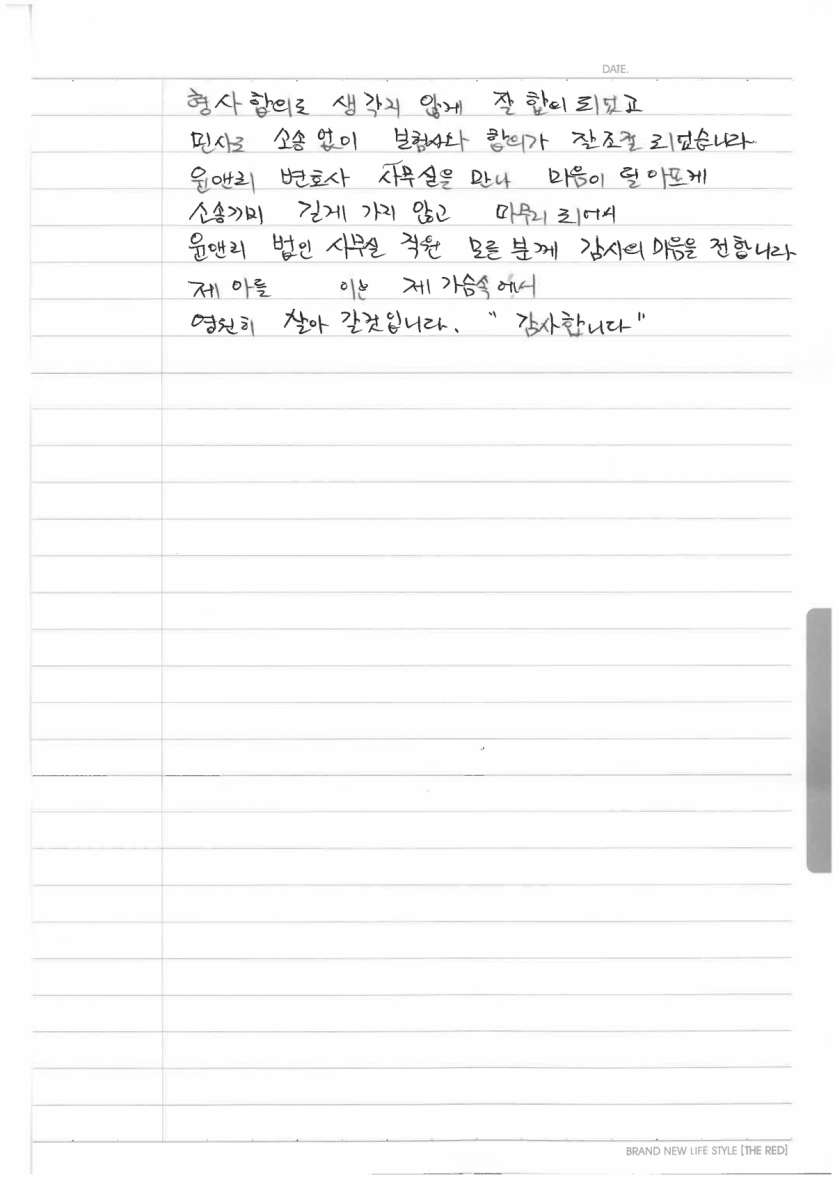 DATE.
형사 합의로 생각지 않게 잘 합의 되었고
민사로 소송 없이 보험사와 합의가 잘 조절 되었습니다
윤앤리 변호사 사무실을 만나 마음이 덜 아프게
소송까지 길게 가지 않고 마무리 되어서
윤앤리 법인 사무실 직원 모든 분께 감사의 마음을 전합니다
제 아들 이는 제 가슴속에서
영원히 살아 갈것입니다. " 감사합니다"
BRAND NEW LIFE STYLE [THE RED]